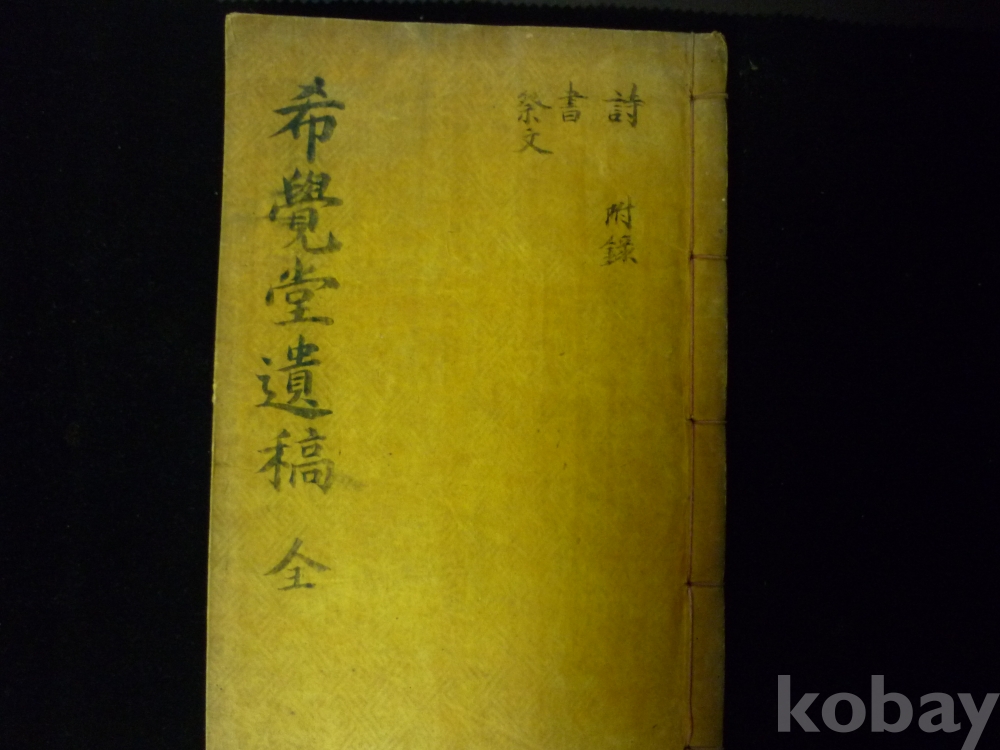 詩 附錄
書
祭文
希覺堂遺稿 全
kobay